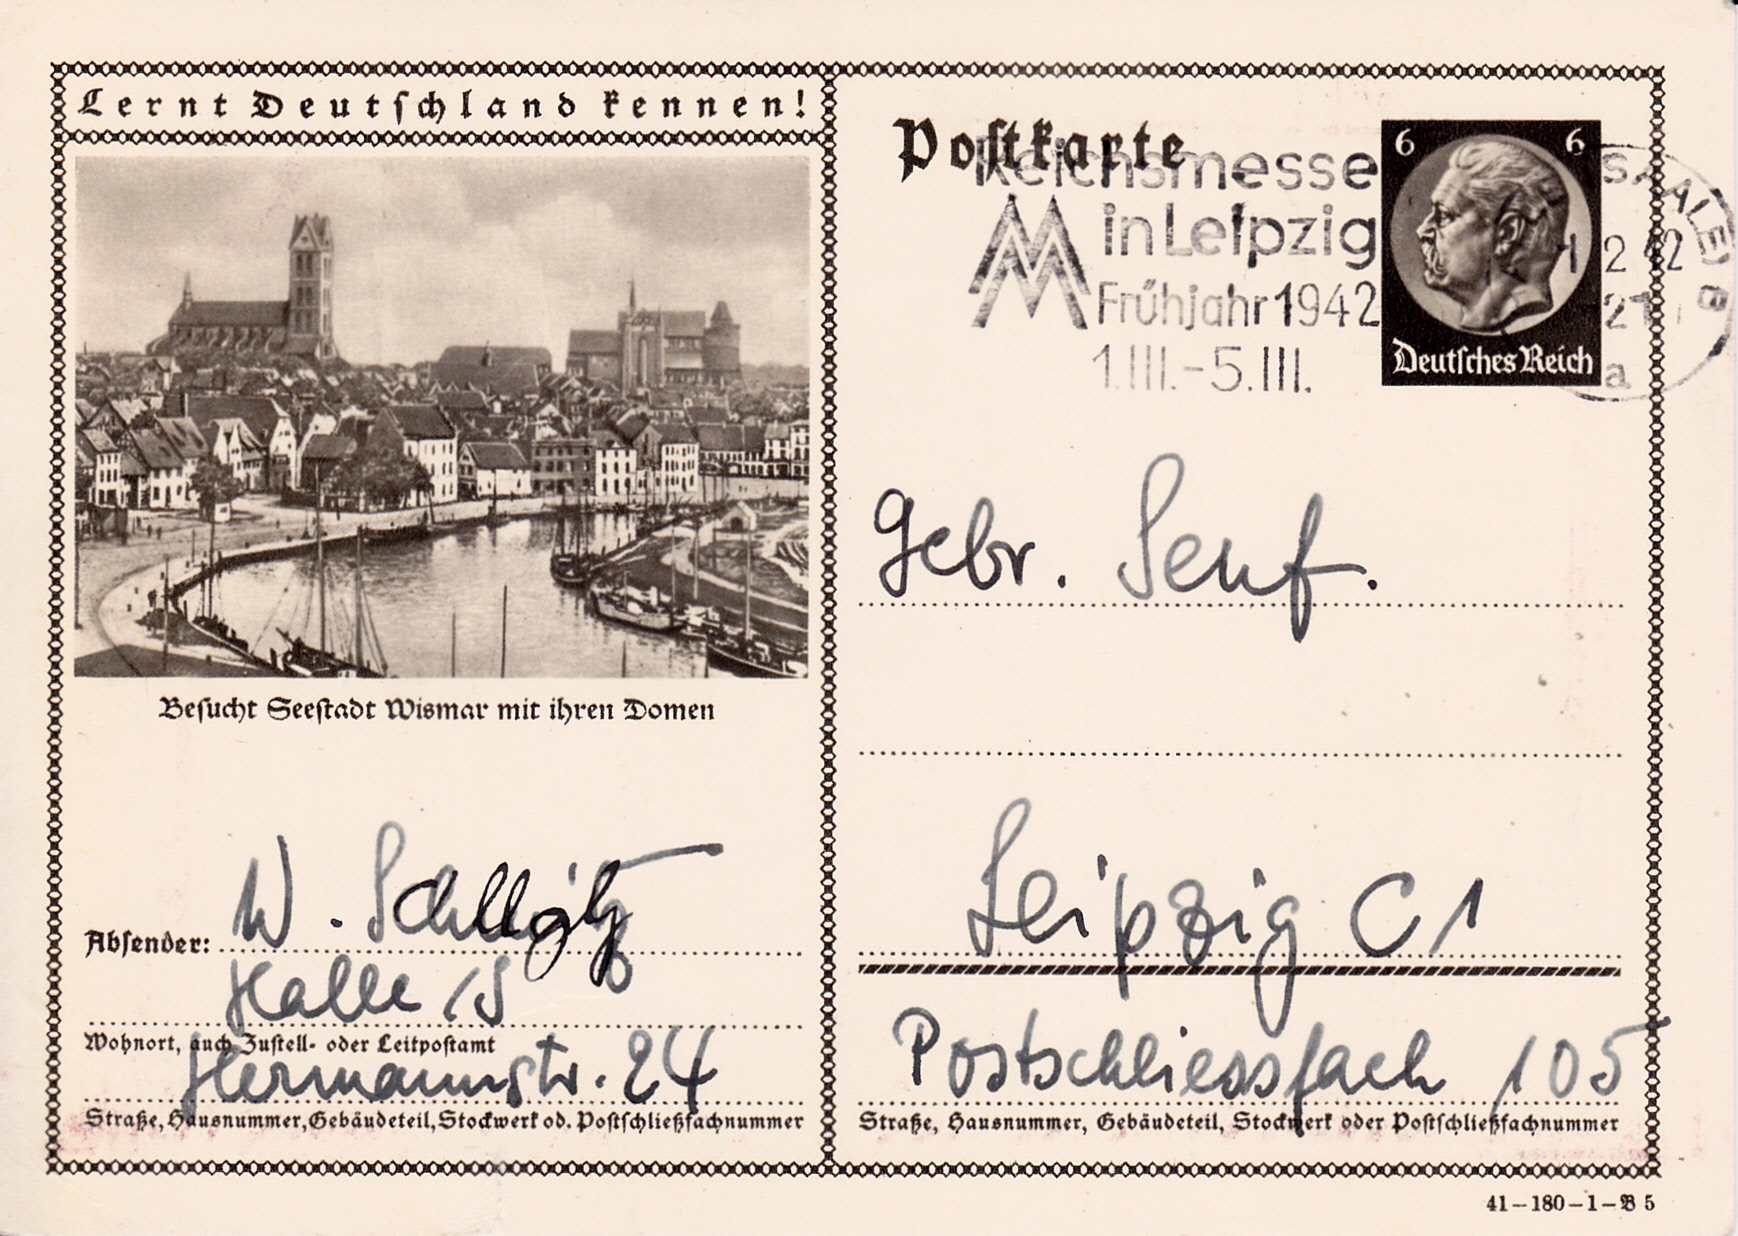 Lernt Deutschland kennen!
Besucht Seestadt Wismar mit ihren Domen
Absender: W.
Halle /S
Wohnort, auch Zustell- oder Leitpostamt
Hermannstr. 24
Straße, Hausnummer, Gebäudeteil, Stockwerk od. Postschließfachnummer
Postkarte
Reichsmesse
in Leipzig
Frühjahr 1942
1.III.-5.III.
6 6
Deutsches Reich
SAALE
2 42
21
a
Gebr. Senf.
Leipzig C1
Postschliessfach 105
Straße, Hausnummer, Gebäudeteil, Stockwerk oder Postschließfachnummer
41-180-1-B 5